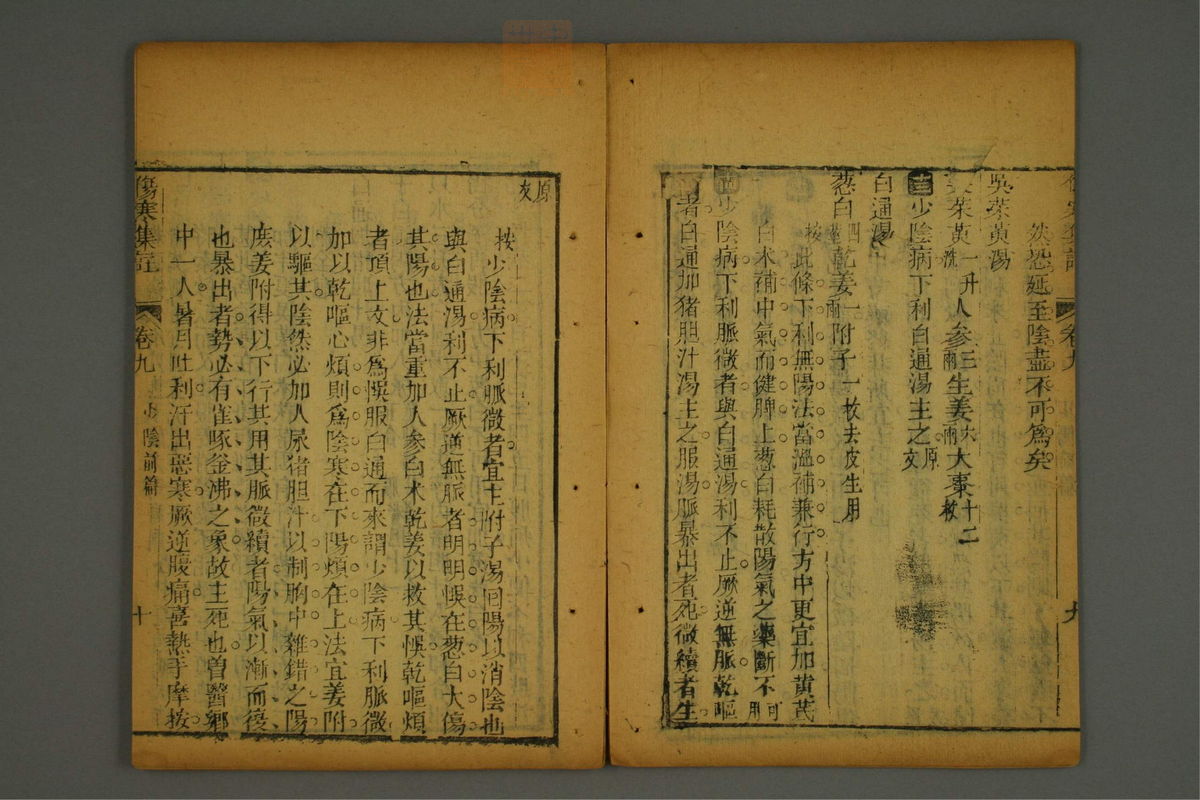 然恐延至陰盡不可爲矣
吳茱萸湯
茱萸一升洗人參三兩生姜六兩大棗十二枚
少陰病下利白通湯主之原文
白通湯
葱白四莖乾姜一兩附子一枚去皮生用
按此條下利無陽法當溫補兼行方中更宜加黃芪
白朮補中氣而健脾上葱白耗散陽氣之藥斷不可用
少陰病下利脈微者與白通湯利不止厥逆無脈乾嘔
者白通加猪胆汁湯主之服湯脈暴出者死微續者生
原文
按少陰病下利脈微者宜主附子湯回陽以消陰也
與白通湯利不止厥逆無脈者明明悞在葱白大傷
其陽也法當重加人參白朮乾姜以救其悞乾嘔煩
者頂上文非爲悞服白通而來謂少陰病下利脈微
加以乾嘔心煩則爲陰寒在下陽煩在上法宜姜附
以驅其陰然必加人尿猪胆汁以制胸中雜錯之陽
庻姜附得以下行其用其脈微續者陽氣以漸而復
也暴出者勢必有雀啄釡沸之象故主死也曽醫鄉
中一人暑月吐利汗出惡寒厥逆腹痛喜熱手摩按
傷寒集註 卷九 少陰前篇 十